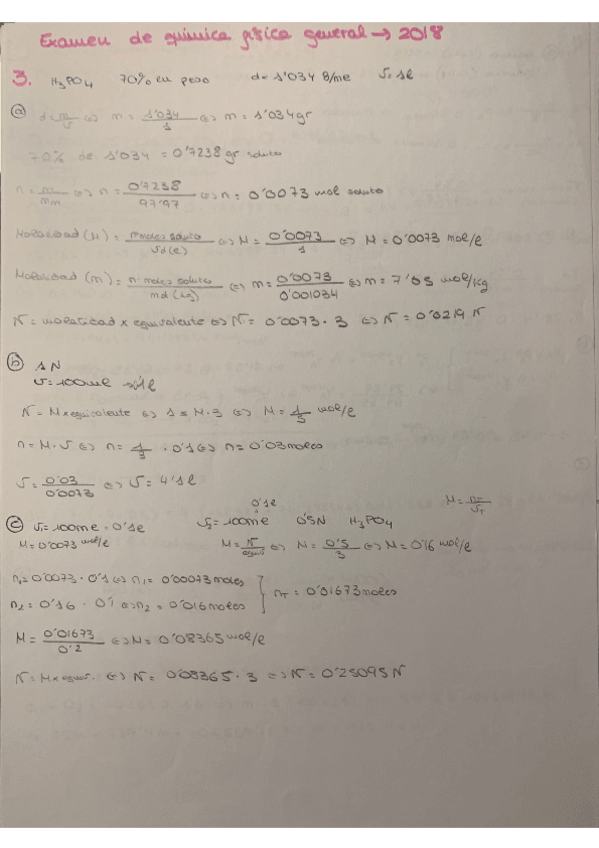 Examen de química física general → 2018
3. H₃PO₄ 70% en peso d = 1'034 g/ml V = 1l
ⓐ d = m/v ⇔ m = 1'034/1 ⇔ m = 1'034gr
70% de 1'034 = 0'7238 gr soluto
n = m/mm ⇔ n = 0'7238/97'97 ⇔ n = 0'0073 mol soluto
Molaridad (M) = moles soluto/Vd (l) ⇔ M = 0'0073/1 ⇔ M = 0'0073 mol/l
Molalidad (m) = n° moles soluto/md (kg) ⇔ m = 0'0073/0'001034 ⇔ m = 7'05 mol/kg
N = molaridad x equivalente ⇔ N = 0'0073 · 3 ⇔ N = 0'0219 N
ⓑ 1N
V = 100ml → 0'1l
N = M x equivalente ⇔ 1 = M · 3 ⇔ M = 1/3 mol/l
n = M · V ⇔ n = 1/3 · 0'1 ⇔ n = 0'03 moles
V = 0'03/0'0073 ⇔ V = 4'1l
ⓒ V₁ = 100ml = 0'1l V₂ = 100ml 0'1l 0'5N H₃PO₄ M = nT/VT
M = 0'0073 mol/l M = N/equiv ⇔ M = 0'5/3 ⇔ M = 0'16 mol/l
n₁ = 0'0073 · 0'1 ⇔ n₁ = 0'00073 moles
n₂ = 0'16 · 0'1 ⇔ n₂ = 0'016 moles } nT = 0'01673 moles
M = 0'01673/0'2 ⇔ M = 0'08365 mol/l
N = M x equiv. ⇔ N = 0'08365 · 3 ⇔ N = 0'25095 N